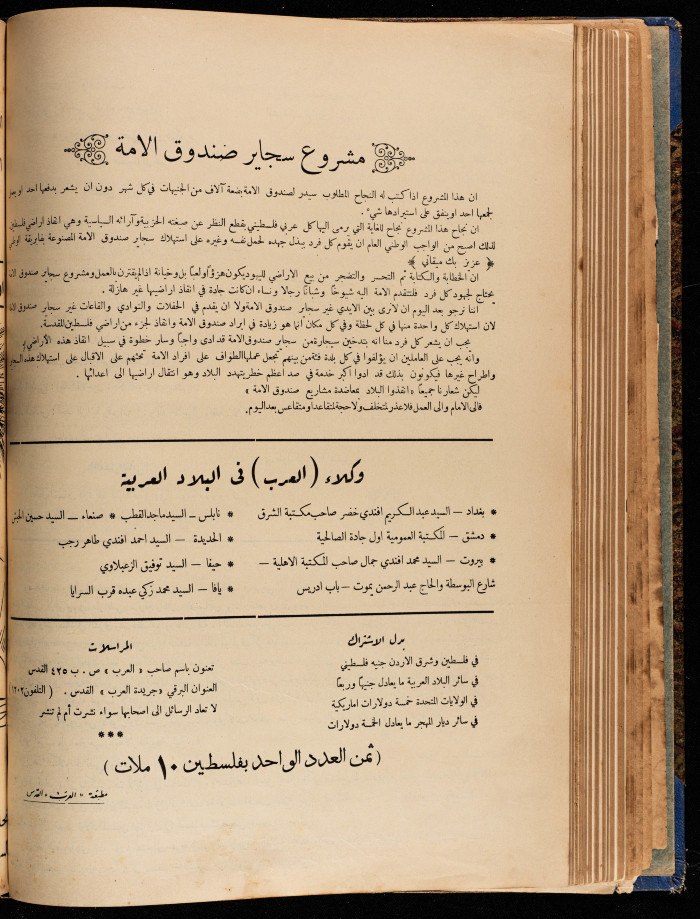 مشروع سجاير صندوق الامة
ان هذا المشروع اذا كتب له النجاح المطلوب سيدر لصندوق الامة بضعة آلاف من الجنيهات في كل شهر دون ان يشعر بدفعها احد او
لجمعها احد او ينفق على استيرادها شيء .
ان نجاح هذا المشروع نجاح للغاية التي يرمى اليها كل عربي فلسطيني بقطع النظر عن صبغته الحزبية وآرائه السياسية وهي انقاذ اراضي فلسطين
لذلك اصبح من الواجب الوطني العام ان يقوم كل فرد ببذل جهده لحمل نفسه وغيره على استهلاك سجاير صندوق الامة المصنوعة بفابريقة
﴿ عزيز بك ميقاتي ﴾
ان الخطابة والكتابة ثم التحسر والتضجر من بيع الاراضي لليهود يكون هزؤا ولعبا بل وخيانة اذا لم يقترن بالعمل ومشروع سجاير صندوق
يحتاج لجهود كل فرد فلتتقدم الامة اليه شيوخًا وشبانًا رجالا ونساء ان كانت جادة في انقاذ اراضيها غير هازلة .
اننا نرجو بعد اليوم ان لا نرى بين الايدي غير سجاير صندوق الامة ولا ان يقدم في الحفلات والنوادي والقاعات غير سجاير صندوق
لان استهلاك كل واحدة منها في كل لحظة وفي كل مكان انما هو زيادة في ايراد صندوق الامة وانقاذ لجزء من اراضي فلسطين المقدسة.
يجب ان يشعر كل فرد منا انه بتدخين سيجارة من سجاير صندوق الامة قد ادى واجبًا وسار خطوة في سبيل انقاذ هذه الأراضي
وانه يجب على العاملين ان يؤلفوا في كل بلدة فئة من بينهم تجعل عملها الطواف على افراد الامة تحثهم على الاقبال على استهلاك هذه السجاير
واطراح غيرها فيكونون بذلك قد ادوا اكبر خدمة في صد اعظم خطر يتهدد البلاد وهو انتقال اراضيها الى اعدائها .
ليكن شعارنا جميعًا « انقذوا البلاد بمعاضدة مشاريع صندوق الامة »
فالى الامام والى العمل فلا عذر لمتخلف ولا حجة لمتقاعد او متقاعس بعد اليوم.
وكلاء (العرب) في البلاد العربية
* بغداد — السيد عبد الكريم افندي خضر صاحب مكتبة الشرق
* دمشق — المكتبة العمومية اول جادة الصالحية
* بيروت — السيد محمد افندي جمال صاحب المكتبة الاهلية —
شارع البوسطة والحاج عبد الرحمن يموت — باب ادريس
* نابلس — السيد ماجد القطب * صنعاء — السيد حسين
* الحديدة — السيد احمد افندي طاهر رجب
* حيفا — السيد توفيق الزعبلاوي
* يافا — السيد محمد زكي عبده قرب السرايا
بدل الاشتراك
في فلسطين وشرق الاردن جنيه فلسطيني
في سائر البلاد العربية ما يعادل جنيهًا وربعًا
في الولايات المتحدة خمسة دولارات اماريكية
في سائر ديار المهجر ما يعادل الخمسة دولارات
المراسلات
تعنون باسم صاحب « العرب » ص . ب ٤٢٥ القدس
العنوان البرقي «جريدة العرب » القدس . ( التلفون
لا تعاد الرسائل الى اصحابها سواء نشرت أم لم تنشر
***
( ثمن العدد الواحد بفلسطين ١٠ ملات )
مطبعة « العرب » القدس